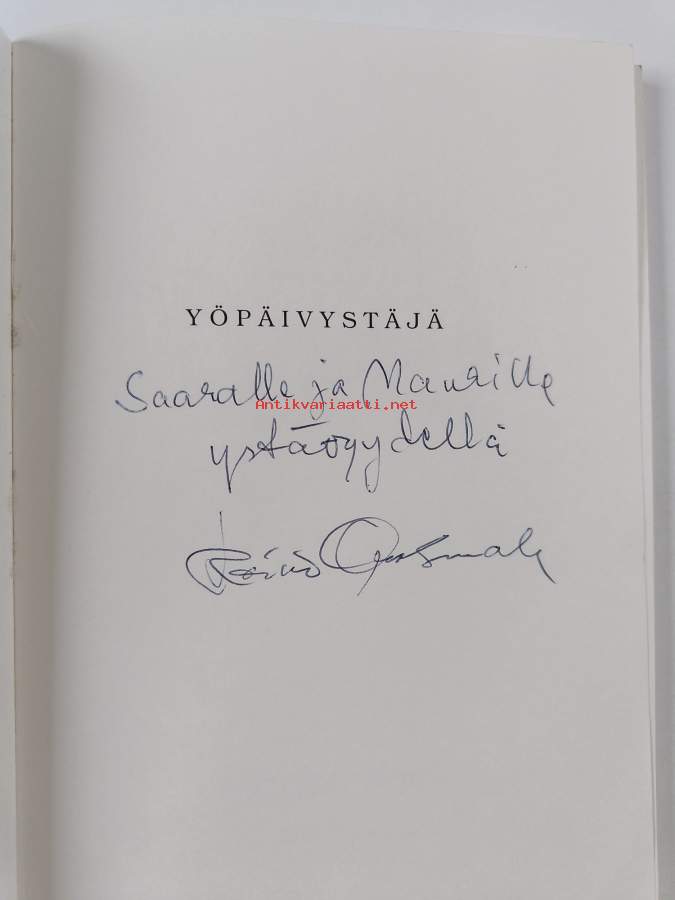 YÖPÄIVYSTÄJÄ
Saaralle ja Maurille
Antikvariaatti.net
ystävyydellä